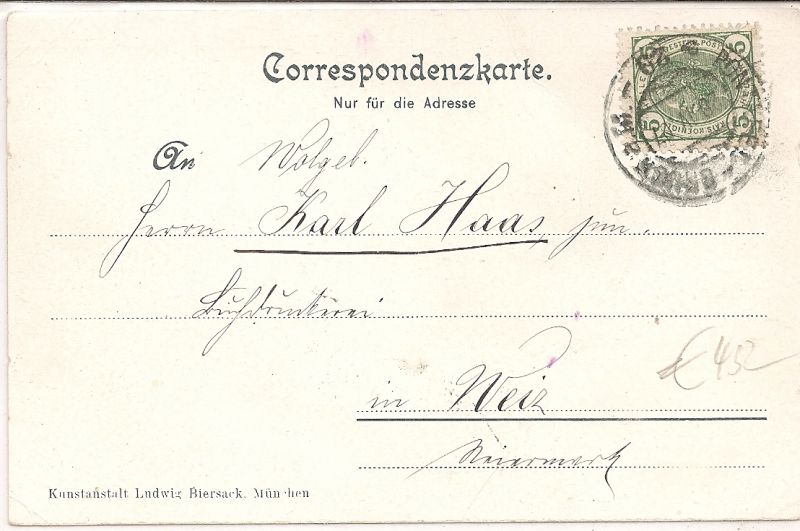 Correspondenzkarte.
Nur für die Adresse
An Wolgeb.
Herrn Karl Haas jun.
Buchdruckerei
in Weiz
Steiermark
€ 4,50
Kunstanstalt Ludwig Biersack. München
5 5 5